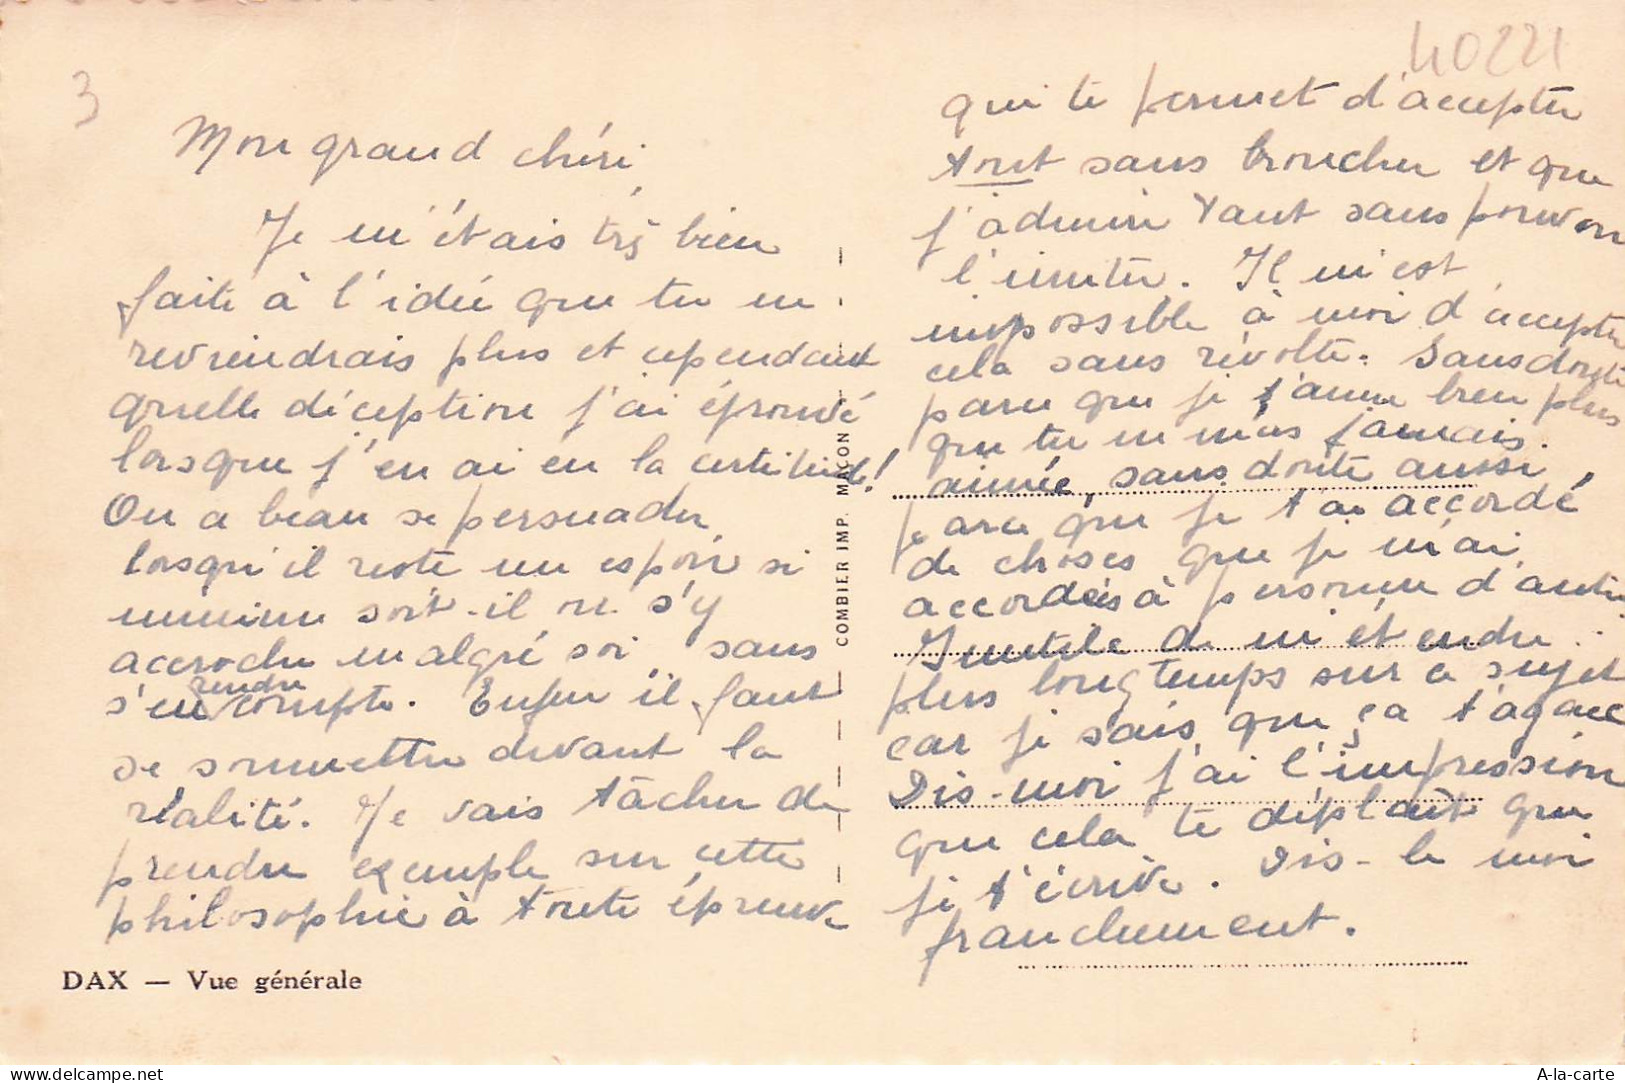 3
40221
Mon grand chéri
Je m'étais très bien
faite à l'idée que tu ne
reviendrais plus et cependant
quelle déception j'ai éprouvé
lorsque j'en ai eu la certitude!
On a beau se persuader
lorsqu'il reste un espoir si
minime soit-il on s'y
accroche malgré soi, sans
s'en rendre compte. Enfin il faut
se soumettre devant la
réalité. Je vais tâcher de
prendre exemple sur cette
philosophie à toute épreuve
DAX — Vue générale
COMBIER IMP. MACON
qui te permet d'accepter
tout sans broncher et que
j'admire tant sans pouvoir
l'imiter. Il m'est
impossible à moi d'accepter
cela sans révolte. Sans doute
parce que je t'aime bien plus
que tu ne m'as jamais
aimée, sans doute aussi
parce que je t'ai accordé
de choses que je n'ai
accordées à personne d'autre.
Inutile de m'étendre
plus longtemps sur ce sujet
car je sais que ça t'agace
Dis-moi j'ai l'impression
que cela te déplaît que
je t'écrive. Dis-le moi
franchement.
A-la-carte